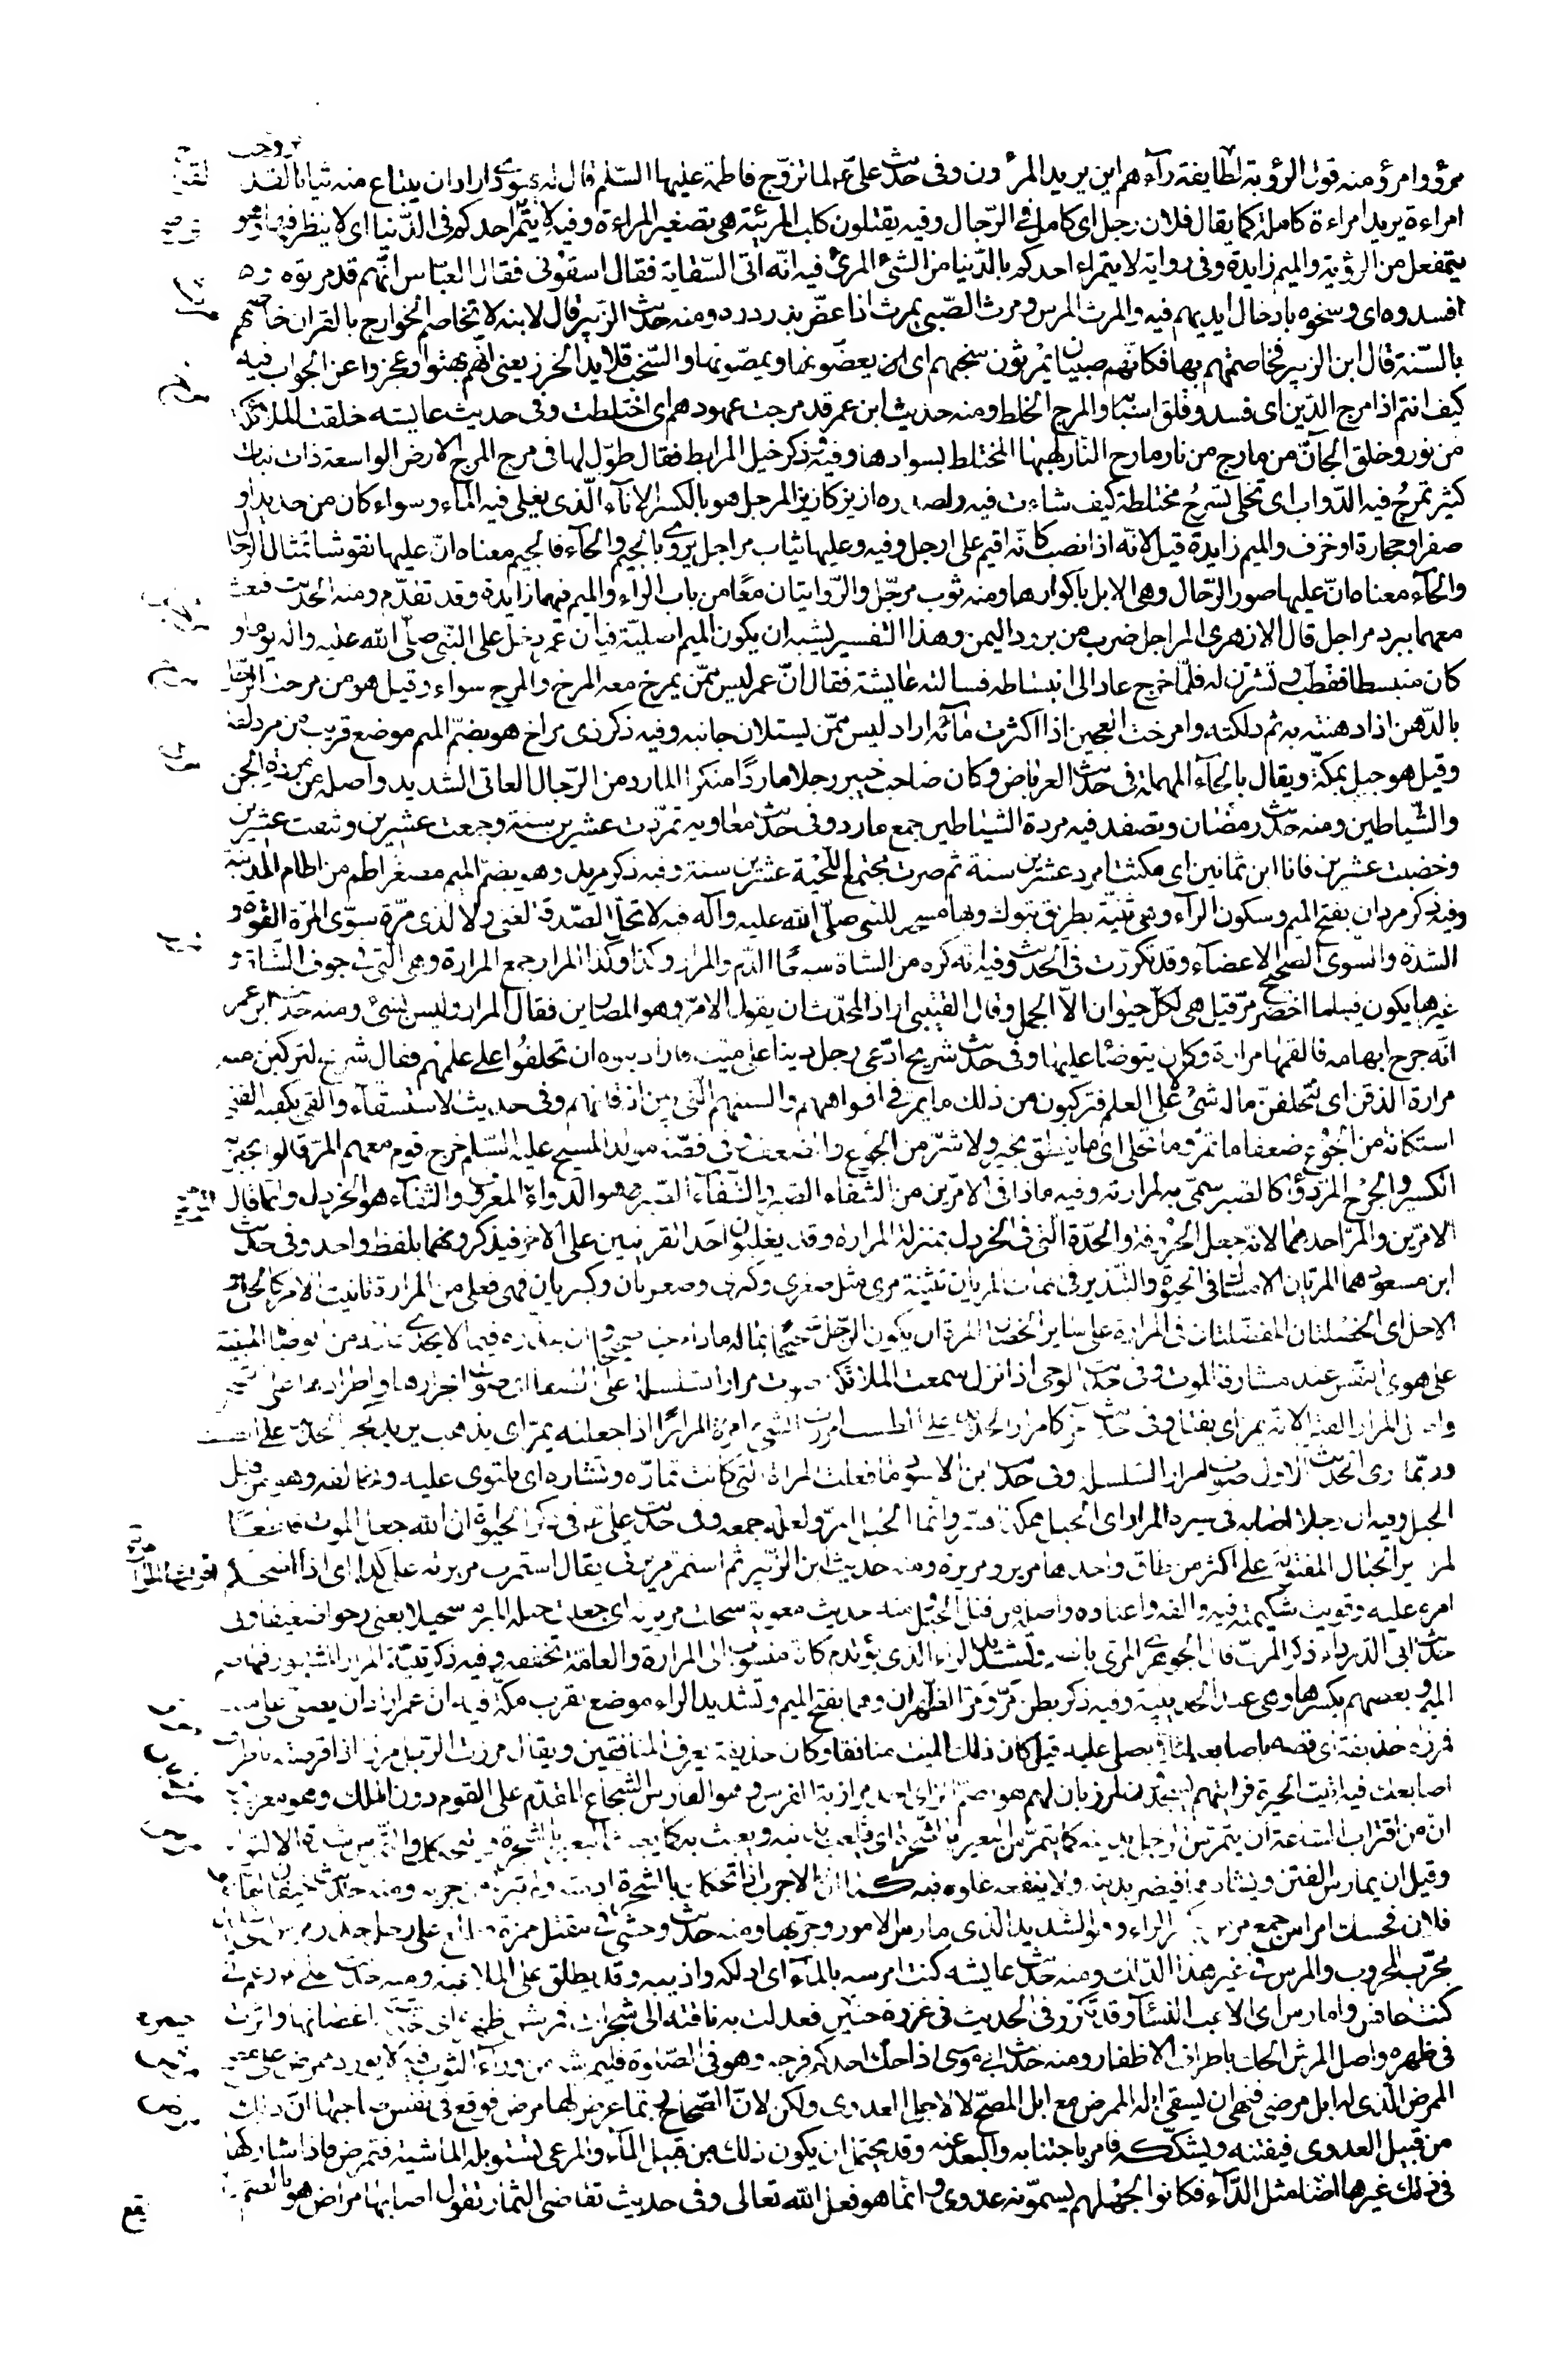 مرؤ وامرؤ ومنه قول الرؤبة لطايفة رآهم اين يريد المرؤن وفى حديث على ع لما تزوج فاطمة عليها السلم قال له يهودى اراد ان يبتاع منه ثيابا لقد تزوجت
امراءة يريد امراءة كاملة كما يقال فلان رجل اى كامل فى الرجال وفيه يقتلون كلب المريئة هى تصغير المراءة وفيه لا يتمرا احدكم فى الدنيا اى لا ينظر فيها وهو
يتمفعل من الرؤية والميم زايدة وفى رواية لا يتمراء احدكم بالدنيا من الشئ المرئ فيه انه اتى السقاية فقال اسقونى فقال العباس انهم قد مرثوه و
افسدوه اى وسخوه بادخال ايديهم فيه والمرث المرس ومرث الصبى يمرث اذا عض بدردره ومنه حديث الزبير قال لابنه لا تخاصم الخوارج بالقران خاصمهم
بالسنة قال ابن الزبير فخاصمتهم بها فكانهم صبيان يمرثون سخبهم اى يعضونها ويمصونها والسخب قلايد الخرز يعنى انهم بهتوا وعجزوا عن الجواب فيه
كيف انتم اذا مرج الدين اى فسد وقلق اسبابه والمرج الخلط ومنه حديث ابن عمر قد مرجت عهودهم اى اختلطت وفى حديث عايشه خلقت الملائكة
من نور وخلق الجان من مارج من نار مارج النار لهبها المختلط بسوادها وفيه ذكر خيل المرابط فقال طول لها فى مرج المرج الارض الواسعة ذات نبات
كثير تمرج فيه الدواب اى تخلى تسرح مختلطة كيف شاءت فيه ولصدره ازيز كازيز المرجل هو بالكسر الاناء الذى يغلى فيه الماء وسواء كان من حديد او
صفر او حجارة او خزف والميم زايدة قيل لانه اذا نصب كانه اقيم على ارجل وفيه وعليها ثياب مراجل يروى بالجيم والحاء فالجيم معناه ان عليها نقوشا تمثال الرجال
والحاء معناه ان عليها صور الرحال وهى الابل باكوارها ومنه ثوب مرجل والروايتان معا من باب الراء والميم فيهما زايدة وقد تقدم ومنه الحديث فبعث
معهما ببرد مراجل قال الازهرى المراجل ضرب من برود اليمن وهذا التفسير يشبه ان يكون الميم اصلية فيه ان عمر دخل على النبى صلى الله عليه واله يوما و
كان منبسطا فقطب وتشزن له فلما خرج عاد الى انبساطه فسالته عايشة فقال ان عمر ليس ممن يمرخ معه المرخ والمرح سواء وقيل هو من مرخت الرجل
بالدهن اذا دهنته به ثم دلكته وامرخت العجين اذا اكثرت مائه اراد ليس ممن يستلان جانبه وفيه ذكر ذى مراخ هو بضم الميم موضع قريب من مزدلفة
وقيل هو جبل بمكة ويقال بالحاء المهملة فى حديث العرباض وكان صاحب خيبر رجلا ماردا منكرا المارد من الرجال العاتى الشديد واصله من مردة الجن
والشياطين ومنه حديث رمضان وتصفد فيه مردة الشياطين جمع مارد وفى حديث معاويه تمردت عشرين سنة وجمعت عشرين ونتفت عشرين
وخضبت عشرين فانا ابن ثمانين اى مكثت امرد عشرين سنة ثم صرت مجتمع اللحية عشرين سنة وفيه ذكر مريد وهو بضم الميم مصغر اطم من اطام المدينة
وفيه ذكر مردان بفتح الميم وسكون الراء وهى ثنية بطريق تبوك وبها مسجد للنبى صلى الله عليه وآله فيه لا تحل الصدقة لغنى ولا لذى مرة سوى المرة القوة و
الشدة والسوى الصحيح الاعضاء وقد تكررت فى الحديث وفيه انه كره من الشاة سبعا الدم والمرار وكذا وكذا المرار جمع المرارة وهى التى فى جوف الشاة و
غيرها يكون فيها ماء اخضر مر قيل هى لكل حيوان الا الجمل وقال القتيبى اراد المحدث ان يقول الامر وهو المصارين فقال المرار وليس بشئ ومنه حديث ابن عمر
انه جرح ابهامه فالقمها مرارة وكان يتوضا عليها وفى حديث شريح ادعى رجل دينا على ميت فاراد بنوه ان تحلفوا على علمهم فقال شريح لتركبن منه
مرارة الذقن اى لتحلفن ما له شئ لا على العلم فتركبون من ذلك ما يمر فى افواههم والسنتهم التى بين اذقانهم وفى حديث الاستسقاء والقى بكفيه الفتى
استكانة من الجوع ضعفا ما تمر وما تحلى اى ما ينطق بخير ولا شر من الجوع والضعف وفى قصة مولد المسيح عليه السلم خرج قوم معهم المر قالوا يجبر
الكسر والجرح المر دواء كالصبر سمى به لمرارته وفيه ماذا فى الامرين من الشفاء الصبر والثفاء الصبر هو الدواء المعروف والثفاء هو الخردل وانما قال
الامرين والمر احدهما لانه جعل الحروفة والحدة التى فى الخردل بمنزلة المرارة وقد يغلبون احد القرينين على الاخر فيذكرونهما بلفظ واحد وفى حديث
ابن مسعود هما المريان الامساك فى الحيوة والتبذير فى الممات المريان تثنية مرى مثل صغرى وكبرى وصغريان وكبريان فهى فعلى من المرارة تانيث الامر كالجلى و
الاجل اى الخصلتان المفضلتان فى المرارة على ساير الخصال المرة ان يكون الرجل شحيحا بماله مادام حيا صحيحا وان يبذره فيما لا يجدى عليه من الوصايا المبنية
على هوى النفس عند مشارفة الموت وفى حديث الوحى اذا نزل سمعت الملائكة صوت مرار السلسلة على الصفا اى صوت انجرارها واطرادها على الصخر
وربما روى الحديث الاول صوت امرار السلسلة وفى حديث ابى الاسود ما فعلت المراة التى كانت تماره وتشاره اى تلتوى عليه وتخالفه وهو من فتل
الحبل وفيه ان رجلا اصابه فى سيره المرار اى الحبل هكذا فسر وانما الحبل المر ولعله جمعه وفى حديث على ع فى ذكر الحيوة ان الله جعل الموت قاطعا
لمراير الحبال المفتولة على اكثر من طاق واحدها مرير ومريرة ومنه حديث ابن الزبير ثم استمرت مريرتى يقال استمرت مريرته على كذا اى اذا استحكم
امره عليه وقويت شكيمته فيه والفه واعتاده واصله من فتل الحبل ومنه حديث معوية سحلت مريرته اى جعلت حبله المبرم سحيلا يعنى رخوا ضعيفا وفى
حديث ابى الدرداء ذكر المرى قال الجوهرى المرى بالضم وتشديد الراء الذى يؤتدم كانه منسوب الى المرارة والعامة تخففه وفيه ذكر ثنية المرار المشهور فيها ضم
الميم وبعضهم يكسرها وهى عند الحديبية وفيه ذكر بطن مر ومر الظهران وهما بفتح الميم وتشديد الراء موضع بقرب مكة فيه ان عمر اراد ان يصلى على ميت
فمرزه حذيفة اى قرصه باصابعه لئلا يصلى عليه قيل كان ذلك الميت منافقا وكان حذيفة يعرف المنافقين ويقال مرزت الرجل مرزا اذا قرصته باطراف
اصابعك فيه اتيت الحيرة فرايتهم يسجدون لمرزبان لهم هو بضم الزاى احد مرازبة الفرس وهو الفارس الشجاع المقدم على القوم دون الملك وهو معرب
ان من اقتراب الساعة ان يتمرس الرجل بدينه كما يتمرس البعير بالشجرة اى يتلعب بدينه ويعبث به كما يعبث البعير بالشجرة
وقيل ان يمارس الفتن ويشادها فيضر بدينه ولا ينفعه غلوه فيه كما ان الاجرب اذا تحكك بالشجرة ادمته ولم تبره من جربه ومنه حديث
فلان فحسك امراس جمع مرس بكسر الراء وهو الشديد الذى مارس الامور وجربها ومنه حديث وحشى فى مقتل حمزة
مجرب للحروب والمرس فى غير هذا الدلك ومنه حديث عايشه كنت امرسه بالماء اى ادلكه واذيبه وقد يطلق على الملاعبة ومنه حديث على زعم انى
كنت اعافس وامارس اى الاعب النساء وقد تكرر فى الحديث فى غزوة حنين فعدلت به ناقته الى شجرات فمرشن ظهره اى خدشته اغصانها واثرت
فى ظهره واصل المرش الحك باطراف الاظفار ومنه حديث ابى موسى اذا حك احدكم فرجه وهو فى الصلوة فليمرشه من وراء الثوب فيه لا يورد ممرض على مصح
الممرض الذى له ابل مرضى فنهى ان يسقى ابله الممرض مع ابل المصح لا لاجل العدوى ولكن لان الصحاح ربما عرض لها مرض فوقع فى نفس صاحبها ان ذلك
من قبيل العدوى فيفتنه ويشككه فامر باجتنابه والبعد عنه وقد يحتمل ان يكون ذلك من قبيل الماء والمرعى تستوبله الماشية فتمرض فاذا شاركها
فى ذلك غيرها اصابه مثل الداء فكانوا لجهلهم يسمونه عدوى وانما هو فعل الله تعالى وفى حديث تقاضى الثمار تقول اصابها مراض هو بالضم
يقع